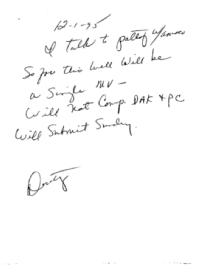 12-1-95
I talked to
So for this well will be
a Single MV -
Will Not Comp DAK & PC
Will Submit Sundry.